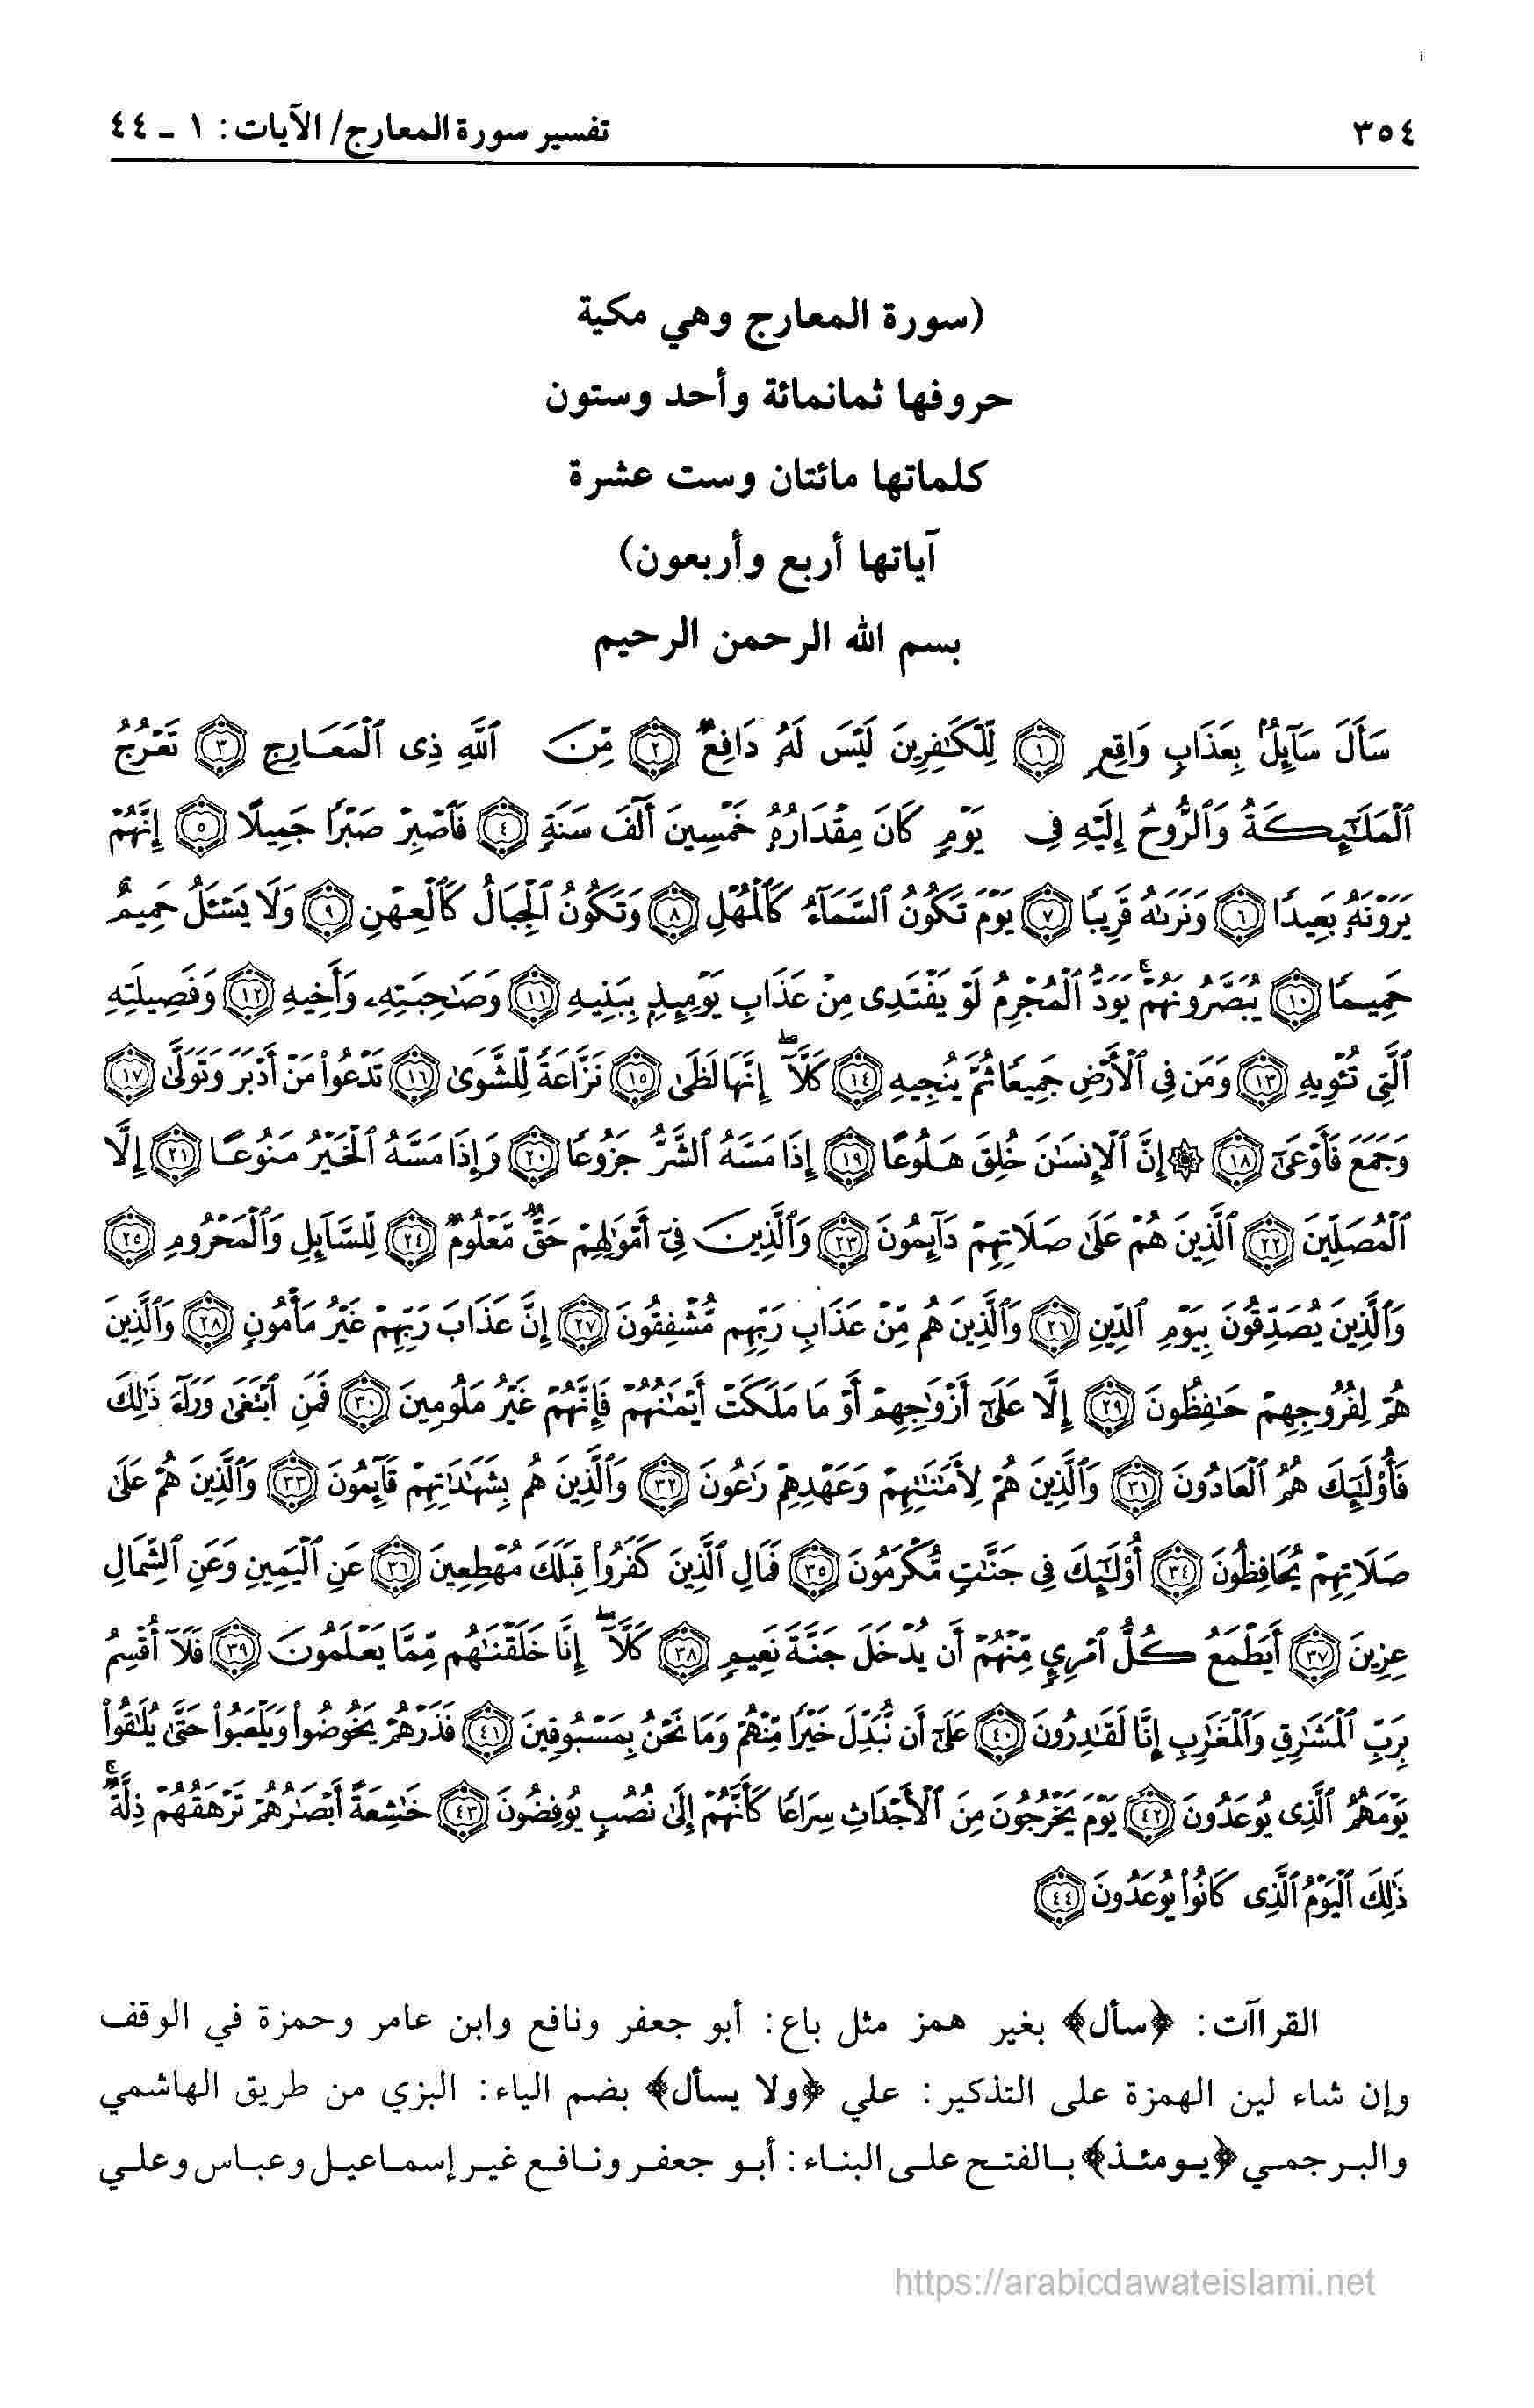 ٣٥٤
تفسير سورة المعارج/ الآيات: ١ ـ ٤٤
(سورة المعارج وهي مكية
حروفها ثمانمائة وأحد وستون
كلماتها مائتان وست عشرة
آياتها أربع وأربعون)
بسم الله الرحمن الرحيم
سَأَلَ سَآئِلٌۢ بِعَذَابٍ وَاقِعٍ ﴿١﴾ لِّلۡكَٰفِرِينَ لَيۡسَ لَهُۥ دَافِعٌ ﴿٢﴾ مِّنَ ٱللَّهِ ذِى ٱلۡمَعَارِجِ ﴿٣﴾ تَعۡرُجُ
ٱلۡمَلَٰٓئِكَةُ وَٱلرُّوحُ إِلَيۡهِ فِى يَوۡمٍ كَانَ مِقۡدَارُهُۥ خَمۡسِينَ أَلۡفَ سَنَةٍ ﴿٤﴾ فَٱصۡبِرۡ صَبۡرًا جَمِيلًا ﴿٥﴾ إِنَّهُمۡ
يَرَوۡنَهُۥ بَعِيدًا ﴿٦﴾ وَنَرَىٰهُ قَرِيبًا ﴿٧﴾ يَوۡمَ تَكُونُ ٱلسَّمَآءُ كَٱلۡمُهۡلِ ﴿٨﴾ وَتَكُونُ ٱلۡجِبَالُ كَٱلۡعِهۡنِ ﴿٩﴾ وَلَا يَسۡـَٔلُ حَمِيمٌ
حَمِيمًا ﴿١٠﴾ يُبَصَّرُونَهُمۡۚ يَوَدُّ ٱلۡمُجۡرِمُ لَوۡ يَفۡتَدِى مِنۡ عَذَابِ يَوۡمِئِذٍۭ بِبَنِيهِ ﴿١١﴾ وَصَٰحِبَتِهِۦ وَأَخِيهِ ﴿١٢﴾ وَفَصِيلَتِهِ
ٱلَّتِى تُـٔۡوِيهِ ﴿١٣﴾ وَمَن فِى ٱلۡأَرۡضِ جَمِيعًا ثُمَّ يُنجِيهِ ﴿١٤﴾ كَلَّآۖ إِنَّهَا لَظَىٰ ﴿١٥﴾ نَزَّاعَةً لِّلشَّوَىٰ ﴿١٦﴾ تَدۡعُواْ مَنۡ أَدۡبَرَ وَتَوَلَّىٰ ﴿١٧﴾
وَجَمَعَ فَأَوۡعَىٰٓ ﴿١٨﴾ ۞ إِنَّ ٱلۡإِنسَٰنَ خُلِقَ هَلُوعًا ﴿١٩﴾ إِذَا مَسَّهُ ٱلشَّرُّ جَزُوعًا ﴿٢٠﴾ وَإِذَا مَسَّهُ ٱلۡخَيۡرُ مَنُوعًا ﴿٢١﴾ إِلَّا
ٱلۡمُصَلِّينَ ﴿٢٢﴾ ٱلَّذِينَ هُمۡ عَلَىٰ صَلَاتِهِمۡ دَآئِمُونَ ﴿٢٣﴾ وَٱلَّذِينَ فِىٓ أَمۡوَٰلِهِمۡ حَقٌّ مَّعۡلُومٌ ﴿٢٤﴾ لِّلسَّآئِلِ وَٱلۡمَحۡرُومِ ﴿٢٥﴾
وَٱلَّذِينَ يُصَدِّقُونَ بِيَوۡمِ ٱلدِّينِ ﴿٢٦﴾ وَٱلَّذِينَ هُم مِّنۡ عَذَابِ رَبِّهِم مُّشۡفِقُونَ ﴿٢٧﴾ إِنَّ عَذَابَ رَبِّهِمۡ غَيۡرُ مَأۡمُونٍ ﴿٢٨﴾ وَٱلَّذِينَ
هُمۡ لِفُرُوجِهِمۡ حَٰفِظُونَ ﴿٢٩﴾ إِلَّا عَلَىٰٓ أَزۡوَٰجِهِمۡ أَوۡ مَا مَلَكَتۡ أَيۡمَٰنُهُمۡ فَإِنَّهُمۡ غَيۡرُ مَلُومِينَ ﴿٣٠﴾ فَمَنِ ٱبۡتَغَىٰ وَرَآءَ ذَٰلِكَ
فَأُوْلَٰٓئِكَ هُمُ ٱلۡعَادُونَ ﴿٣١﴾ وَٱلَّذِينَ هُمۡ لِأَمَٰنَٰتِهِمۡ وَعَهۡدِهِمۡ رَٰعُونَ ﴿٣٢﴾ وَٱلَّذِينَ هُم بِشَهَٰدَٰتِهِمۡ قَآئِمُونَ ﴿٣٣﴾ وَٱلَّذِينَ هُمۡ عَلَىٰ
صَلَاتِهِمۡ يُحَافِظُونَ ﴿٣٤﴾ أُوْلَٰٓئِكَ فِى جَنَّٰتٍ مُّكۡرَمُونَ ﴿٣٥﴾ فَمَالِ ٱلَّذِينَ كَفَرُواْ قِبَلَكَ مُهۡطِعِينَ ﴿٣٦﴾ عَنِ ٱلۡيَمِينِ وَعَنِ ٱلشِّمَالِ
عِزِينَ ﴿٣٧﴾ أَيَطۡمَعُ كُلُّ ٱمۡرِىٍٕ مِّنۡهُمۡ أَن يُدۡخَلَ جَنَّةَ نَعِيمٍ ﴿٣٨﴾ كَلَّآۖ إِنَّا خَلَقۡنَٰهُم مِّمَّا يَعۡلَمُونَ ﴿٣٩﴾ فَلَآ أُقۡسِمُ
بِرَبِّ ٱلۡمَشَٰرِقِ وَٱلۡمَغَٰرِبِ إِنَّا لَقَٰدِرُونَ ﴿٤٠﴾ عَلَىٰٓ أَن نُّبَدِّلَ خَيۡرًا مِّنۡهُمۡ وَمَا نَحۡنُ بِمَسۡبُوقِينَ ﴿٤١﴾ فَذَرۡهُمۡ يَخُوضُواْ وَيَلۡعَبُواْ حَتَّىٰ يُلَٰقُواْ
يَوۡمَهُمُ ٱلَّذِى يُوعَدُونَ ﴿٤٢﴾ يَوۡمَ يَخۡرُجُونَ مِنَ ٱلۡأَجۡدَاثِ سِرَاعًا كَأَنَّهُمۡ إِلَىٰ نُصُبٍ يُوفِضُونَ ﴿٤٣﴾ خَٰشِعَةً أَبۡصَٰرُهُمۡ تَرۡهَقُهُمۡ ذِلَّةٌۚ
ذَٰلِكَ ٱلۡيَوۡمُ ٱلَّذِى كَانُواْ يُوعَدُونَ ﴿٤٤﴾
القراآت: ﴿سأل﴾ بغير همز مثل باع: أبو جعفر ونافع وابن عامر وحمزة في الوقف
وإن شاء لين الهمزة على التذكير: علي ﴿ولا يسأل﴾ بضم الياء: البزي من طريق الهاشمي
والبرجمي ﴿يومئذ﴾ بالفتح على البناء: أبو جعفر ونافع غير إسماعيل وعباس وعلي
https://arabicdawateislami.net